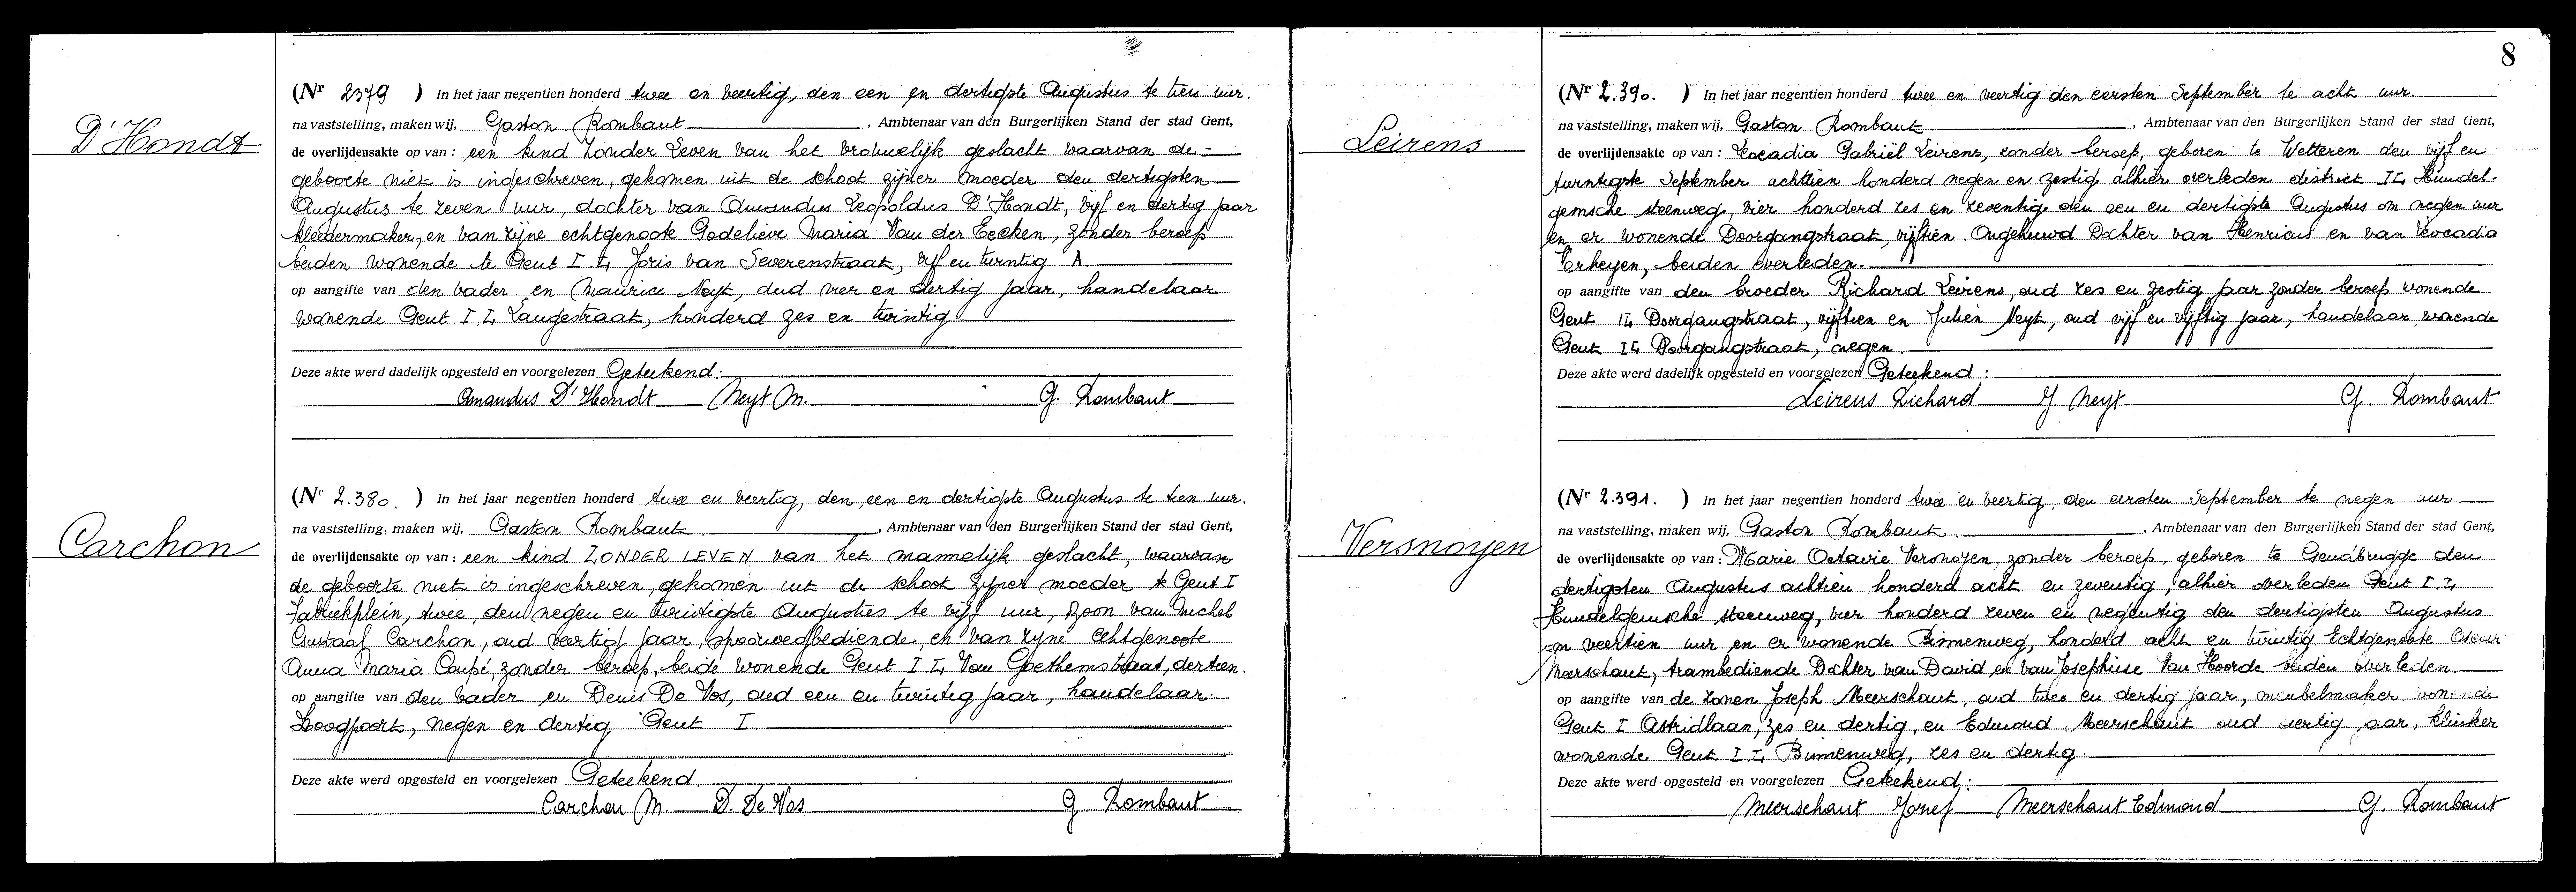 D'Hondt
(Nr 2379 ) In het jaar negentien honderd twee en veertig, den een en dertigste Augustus te tien uur.
na vaststelling, maken wij, Gaston Rombaut, Ambtenaar van den Burgerlijken Stand der stad Gent,
de overlijdensakte op van : een kind zonder Leven van het vrouwelijk geslacht waarvan de =
geboorte niet is ingeschreven, gekomen uit de schoot zijner moeder den dertigsten
Augustus te zeven uur, dochter van Amandus Leopoldus D'Hondt, vijf en dertig jaar
kleedermaker, en van zijne echtgenoote Godelieve Maria Van der Eecken, zonder beroep
beiden wonende te Gent I L, Joris van Severenstraat, vijf en twintig A.
op aangifte van den vader en Maurice Neyt, oud vier en dertig jaar, handelaar
wonende Gent I L, Langestraat, honderd zes en twintig
Deze akte werd dadelijk opgesteld en voorgelezen Geteekend:
Amandus D'Hondt Neyt M. G. Rombaut
Carchon
(Nr 2.380. ) In het jaar negentien honderd twee en veertig, den een en dertigste Augustus te tien uur.
na vaststelling, maken wij, Gaston Rombaut, Ambtenaar van den Burgerlijken Stand der stad Gent,
de overlijdensakte op van : een kind ZONDER LEVEN van het mannelijk geslacht, waarvan
de geboorte niet is ingeschreven, gekomen uit de schoot zijner moeder te Gent I
Fabriekplein, twee, den negen en twintigste Augustus te vijf uur, zoon van Michel
Gustaaf Carchon, oud veertig jaar, spoorwegbediende, en van zijne echtgenoote
Anna Maria Coupé, zonder beroep, beide wonende Gent I L, Van Goethemstraat, dertien.
op aangifte van den vader en Denis De Vos, oud een en twintig jaar, handelaar
Hoogpoort, negen en dertig Gent I
Deze akte werd opgesteld en voorgelezen Geteekend.
Carchon M. D. De Vos G. Rombaut
8
Leirens
(Nr 2.390. ) In het jaar negentien honderd twee en veertig den eersten September te acht uur.
na vaststelling, maken wij, Gaston Rombaut, Ambtenaar van den Burgerlijken Stand der stad Gent,
de overlijdensakte op van : Leocadia Gabriël Leirens, zonder beroep, geboren te Wetteren den vijf en
twintigste September achttien honderd negen en zestig alhier overleden district I L, Hundel-
gemsche steenweg, vier honderd zes en zeventig den een en dertigste Augustus om negen uur
en er wonende Doorgangstraat, vijftien. Ongehuwd Dochter van Henricus en van Leocadia
Verheyen, beiden overleden.
op aangifte van den broeder Richard Leirens, oud zes en zestig jaar zonder beroep wonende
Gent I L Doorgangstraat, vijftien en Julien Neyt, oud vijf en vijftig jaar, handelaar wonende
Gent I L Doorgangstraat, negen.
Deze akte werd dadelijk opgesteld en voorgelezen Geteekend :
Leirens Richard J. Neyt G. Rombaut
Versnoyen
(Nr 2.391. ) In het jaar negentien honderd twee en veertig, den eersten September te negen uur
na vaststelling, maken wij, Gaston Rombaut, Ambtenaar van den Burgerlijken Stand der stad Gent,
de overlijdensakte op van : Marie Octavie Versnoyen, zonder beroep, geboren te Gendbrugge den
dertigsten Augustus achttien honderd acht en zeventig, alhier overleden Gent I L,
Hundelgemsche steenweg, vier honderd zeven en negentig den dertigsten Augustus
om veertien uur en er wonende Binnenweg, honderd acht en twintig Echtgenoote Oscar
Meerschaut, trambediende Dochter van David en van Josephine Van Hoorde beiden overleden.
op aangifte van de zonen Joseph Meerschaut, oud twee en dertig jaar, meubelmaker wonende
Gent I Astridlaan, zes en dertig, en Edmond Meerschaut oud veertig jaar, klinker
wonende Gent I L, Binnenweg, zes en dertig.
Deze akte werd opgesteld en voorgelezen Geteekend:
Meerschaut Jozef Meerschaut Edmond G. Rombaut